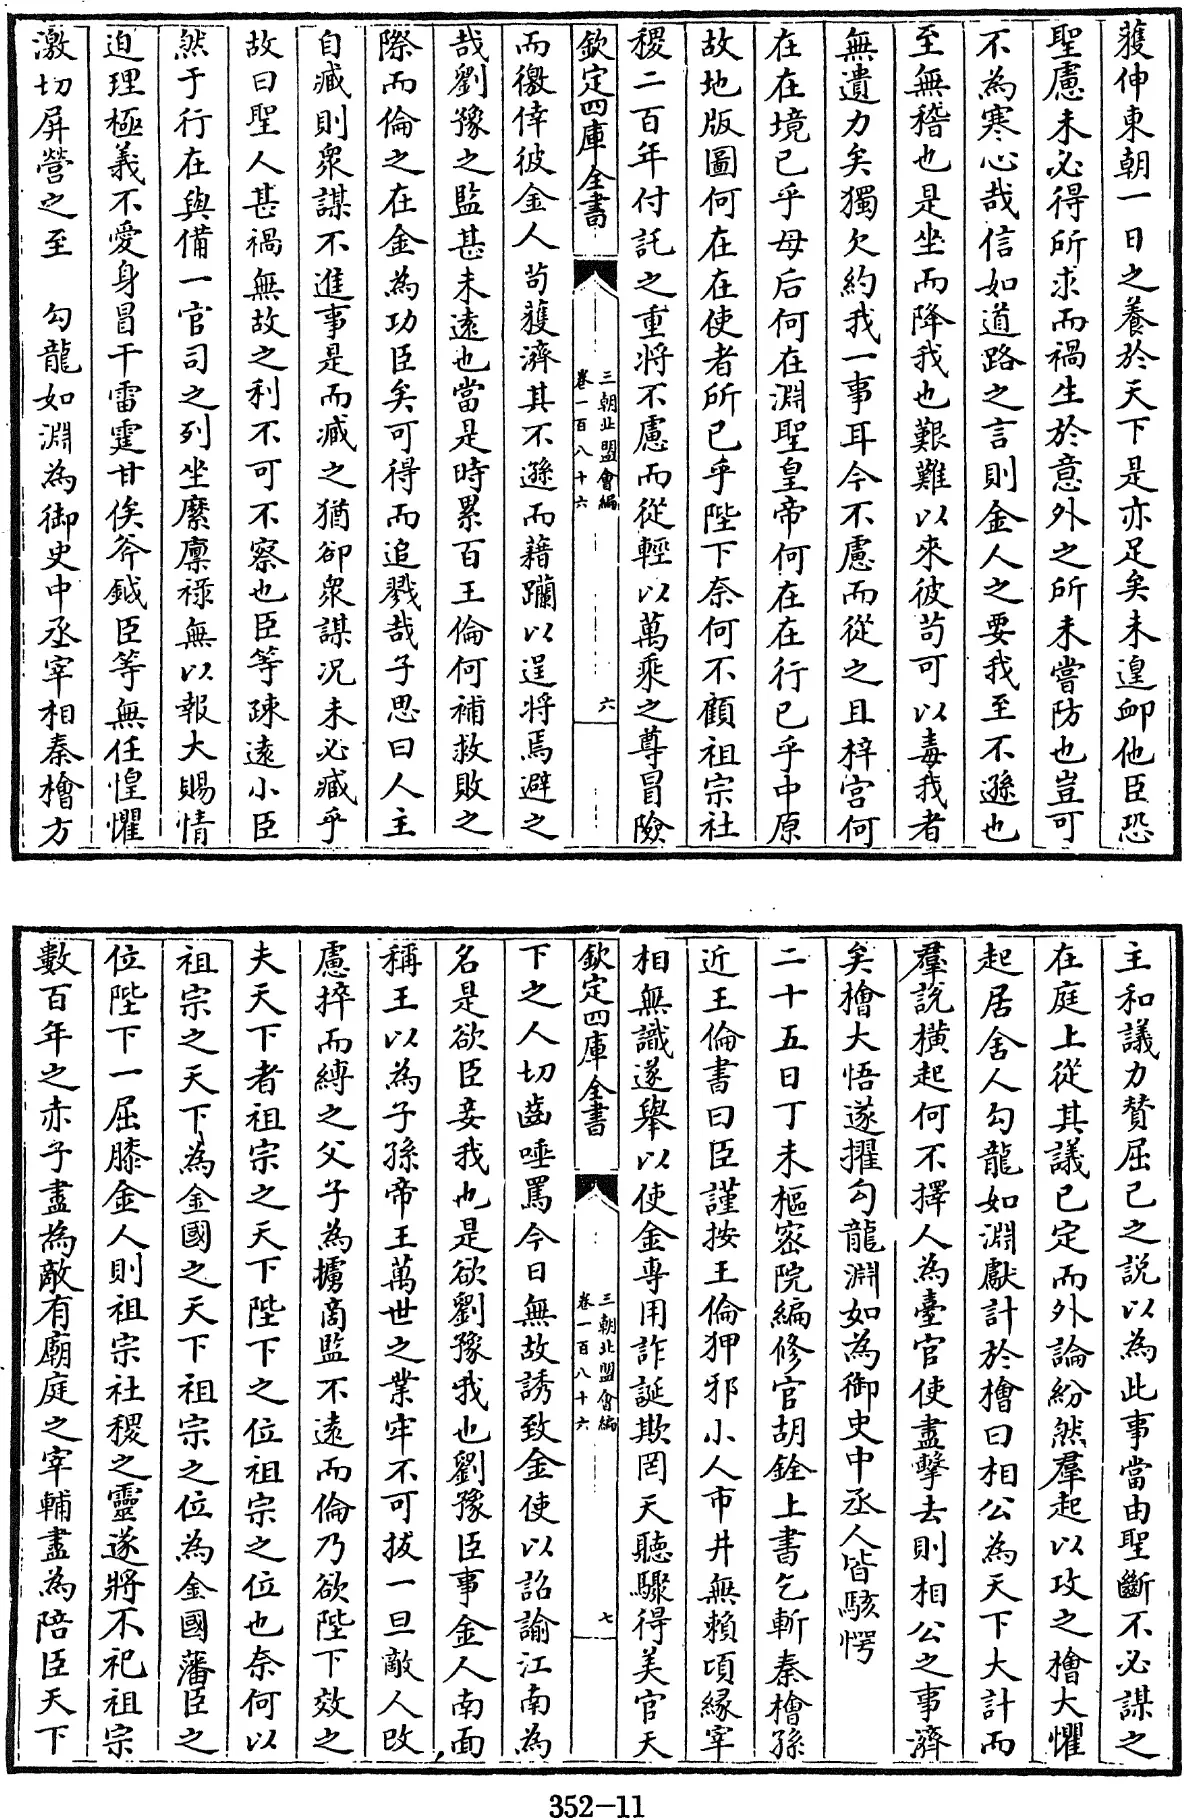 獲伸東朝一日之養於天下是亦足矣未遑卹他臣恐
聖慮未必得所求而禍生於意外之所未嘗防也豈可
不為寒心哉信如道路之言則金人之要我至不遜也
至無稽也是坐而降我也艱難以來彼苟可以毒我者
無遺力矣獨欠約我一事耳今不慮而從之且梓宮何
在在境已乎母后何在淵聖皇帝何在在行已乎中原
故地版圖何在在使者所已乎陛下奈何不顧祖宗社
稷二百年付託之重將不慮而從輕以萬乘之尊冒險
欽定四庫全書
三朝北盟會編
卷一百八十六
六
而徼倖彼金人苟獲濟其不遜而藉躪以逞將焉避之
哉劉豫之監甚未遠也當是時累百王倫何補救敗之
際而倫之在金為功臣矣可得而追戮哉子思曰人主
自臧則衆謀不進事是而臧之猶卻衆謀况未必臧乎
故曰聖人甚禍無故之利不可不察也臣等疎遠小臣
然于行在與備一官司之列坐縻廩祿無以報大賜情
迫理極義不愛身冒干雷霆甘俟斧鉞臣等無任惶懼
激切屏營之至　勾龍如淵為御史中丞宰相秦檜方
主和議力贊屈己之説以為此事當由聖斷不必謀之
在庭上從其議已定而外論紛然羣起以攻之檜大懼
起居舍人勾龍如淵獻計於檜曰相公為天下大計而
羣說橫起何不擇人為臺官使盡擊去則相公之事濟
矣檜大悟遂擢勾龍淵如為御史中丞人皆駭愕
二十五日丁未樞密院編修官胡銓上書乞斬秦檜孫
近王倫書曰臣謹按王倫狎邪小人市井無賴頃緣宰
相無識遂舉以使金專用詐誕欺罔天聽驟得美官天
欽定四庫全書
三朝北盟會編
卷一百八十六
七
下之人切齒唾罵今日無故誘致金使以詔諭江南為
名是欲臣妾我也是欲劉豫我也劉豫臣事金人南面
稱王以為子孫帝王萬世之業牢不可拔一旦敵人改
慮捽而縛之父子為擄商監不遠而倫乃欲陛下效之
夫天下者祖宗之天下陛下之位祖宗之位也奈何以
祖宗之天下為金國之天下祖宗之位為金國藩臣之
位陛下一屈膝金人則祖宗社稷之靈遂將不祀祖宗
數百年之赤子盡為敵有廟庭之宰輔盡為陪臣天下
352-11